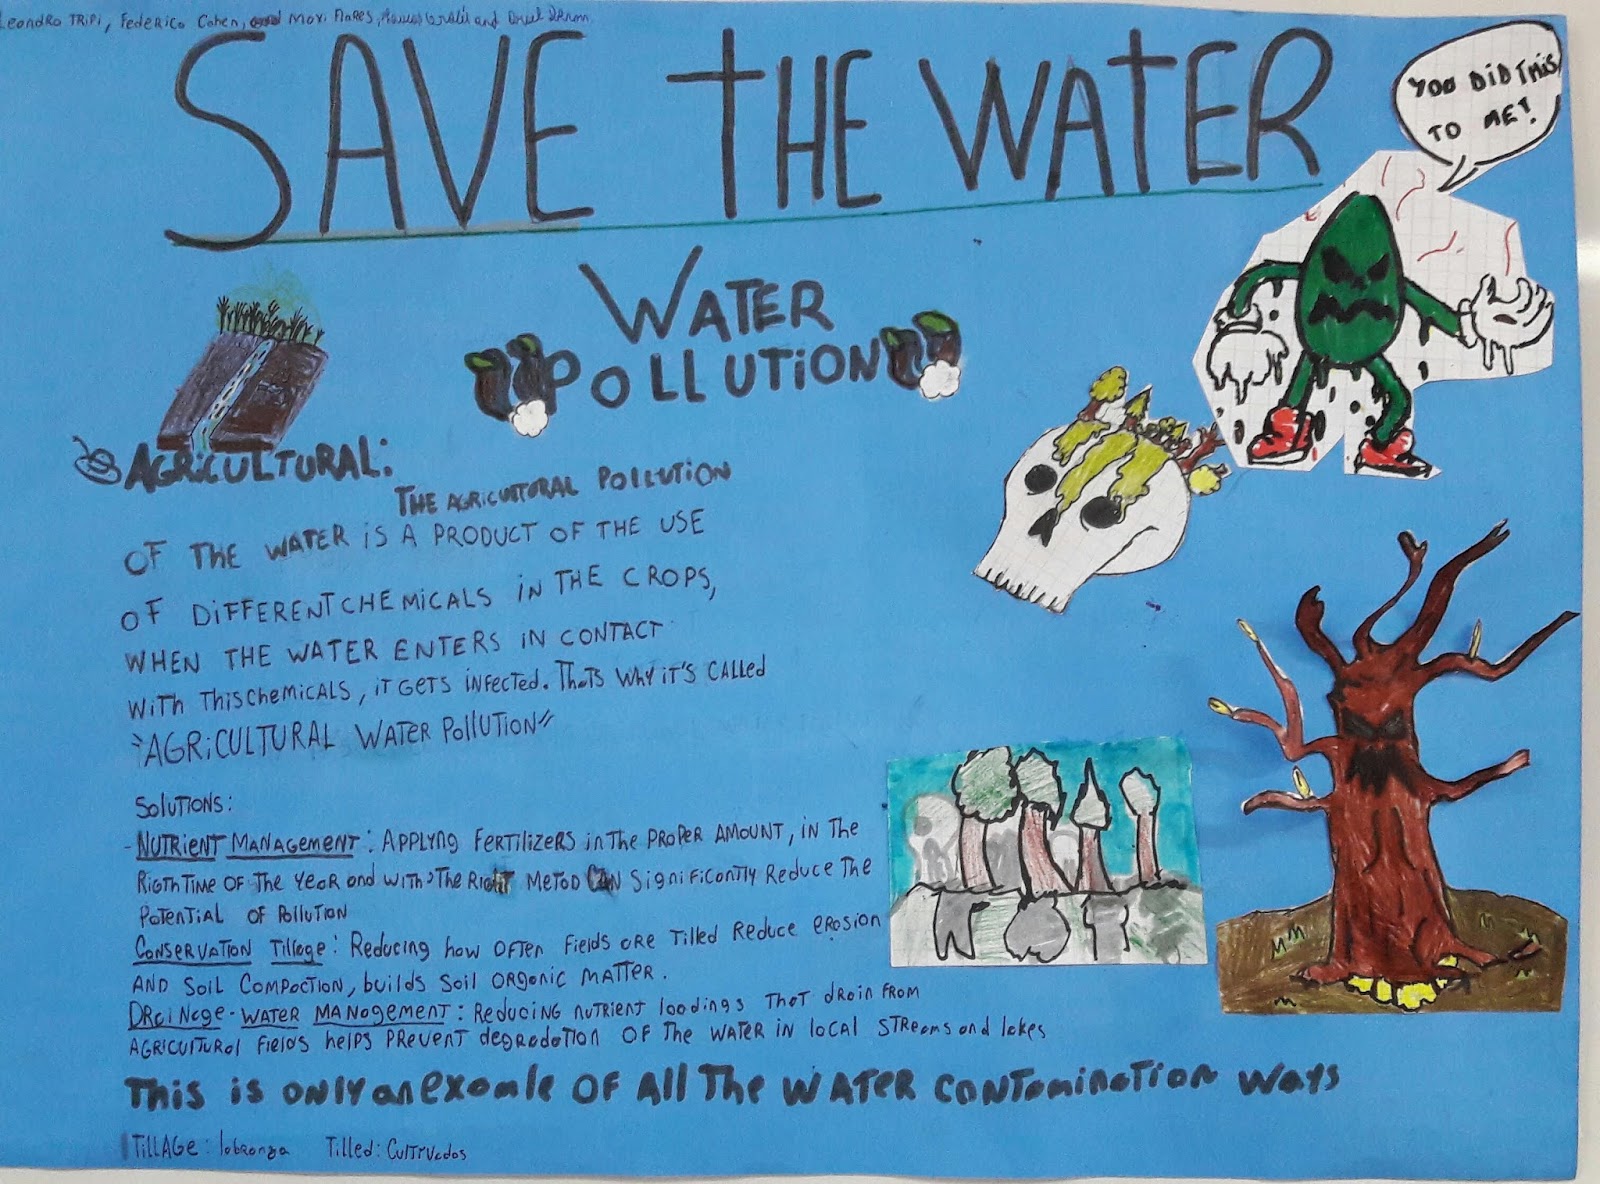 Leandro Tripi, Federico Cohen, and Moxi Flores, and
SAVE THE WATER
YOU DID THIS
TO ME!
WATER
POLLUTION
AGRICULTURAL:
THE AGRICULTURAL POLLUTION
OF THE WATER iS A PRODUCT OF THE USE
OF DIFFERENT CHEMICALS iN THE CROPS,
WHEN THE WATER ENTERS iN CONTACT
WiTH THiS CHEMiCALS, iT GETS iNFECTED. THATS WHY iT'S CALLED
"AGRiCULTURAL WATER POLLUTiON"
SOLUTiONS:
- NUTRiENT MANAGEMENT: APPLYNG FERTILiZERS iN THE PROPER AMOUNT, iN THE
RIGTH TIME OF THE YEAR and WiTH THE RIGHT METOD CAN SiGNiFiCANTLY REDUCE THE
POTENTiAL OF POLLUTiON
CONSERVATION TILLAGE: Reducing how OFTEN FiELDS ARE TILLED REDUCE EROSION
AND SOiL COMPACTION, builds SOIL ORGANIC MATTER.
DRAiNAGE-WATER MANAGEMENT: REDUCING NUTRIENT loadings THAT drain FROM
AGRICULTURAL FIELDS helps PREVENT degradation OF THE WATER IN local STREAMS and lakes
THIS iS ONLY an exomle OF All THE WATER CONTAMINATION WAYS
TILLAGE: labranza Tilled: Cultivados